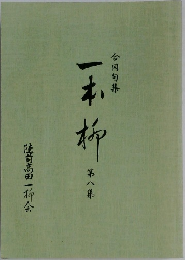 合同句集
一本柳
第八集
陸前高田一柳会